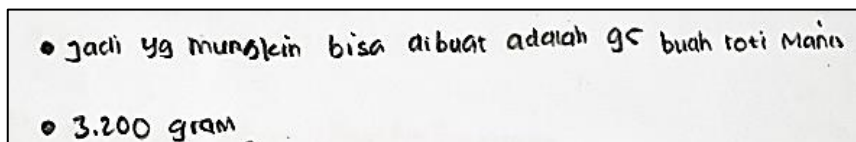 • Jadi yg mungkin bisa dibuat adalah 95 buah roti Manis
• 3.200 gram